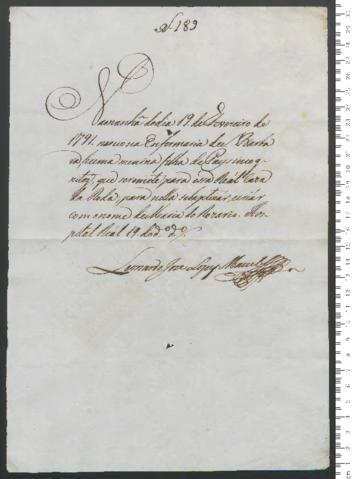 N. 183
Na manhã do dia 19 de Fevereiro de
1791. nasceo na Enfermaria de S. Barba
ra, huma menina filha de Pays incog-
nitos, que remeto para essa Real Caza
da Roda, para nella se baptizar, e criar
com o nome de Maria do Rozario. Hos-
pital Real 19 do d.º
Leonardo Joze Lopes